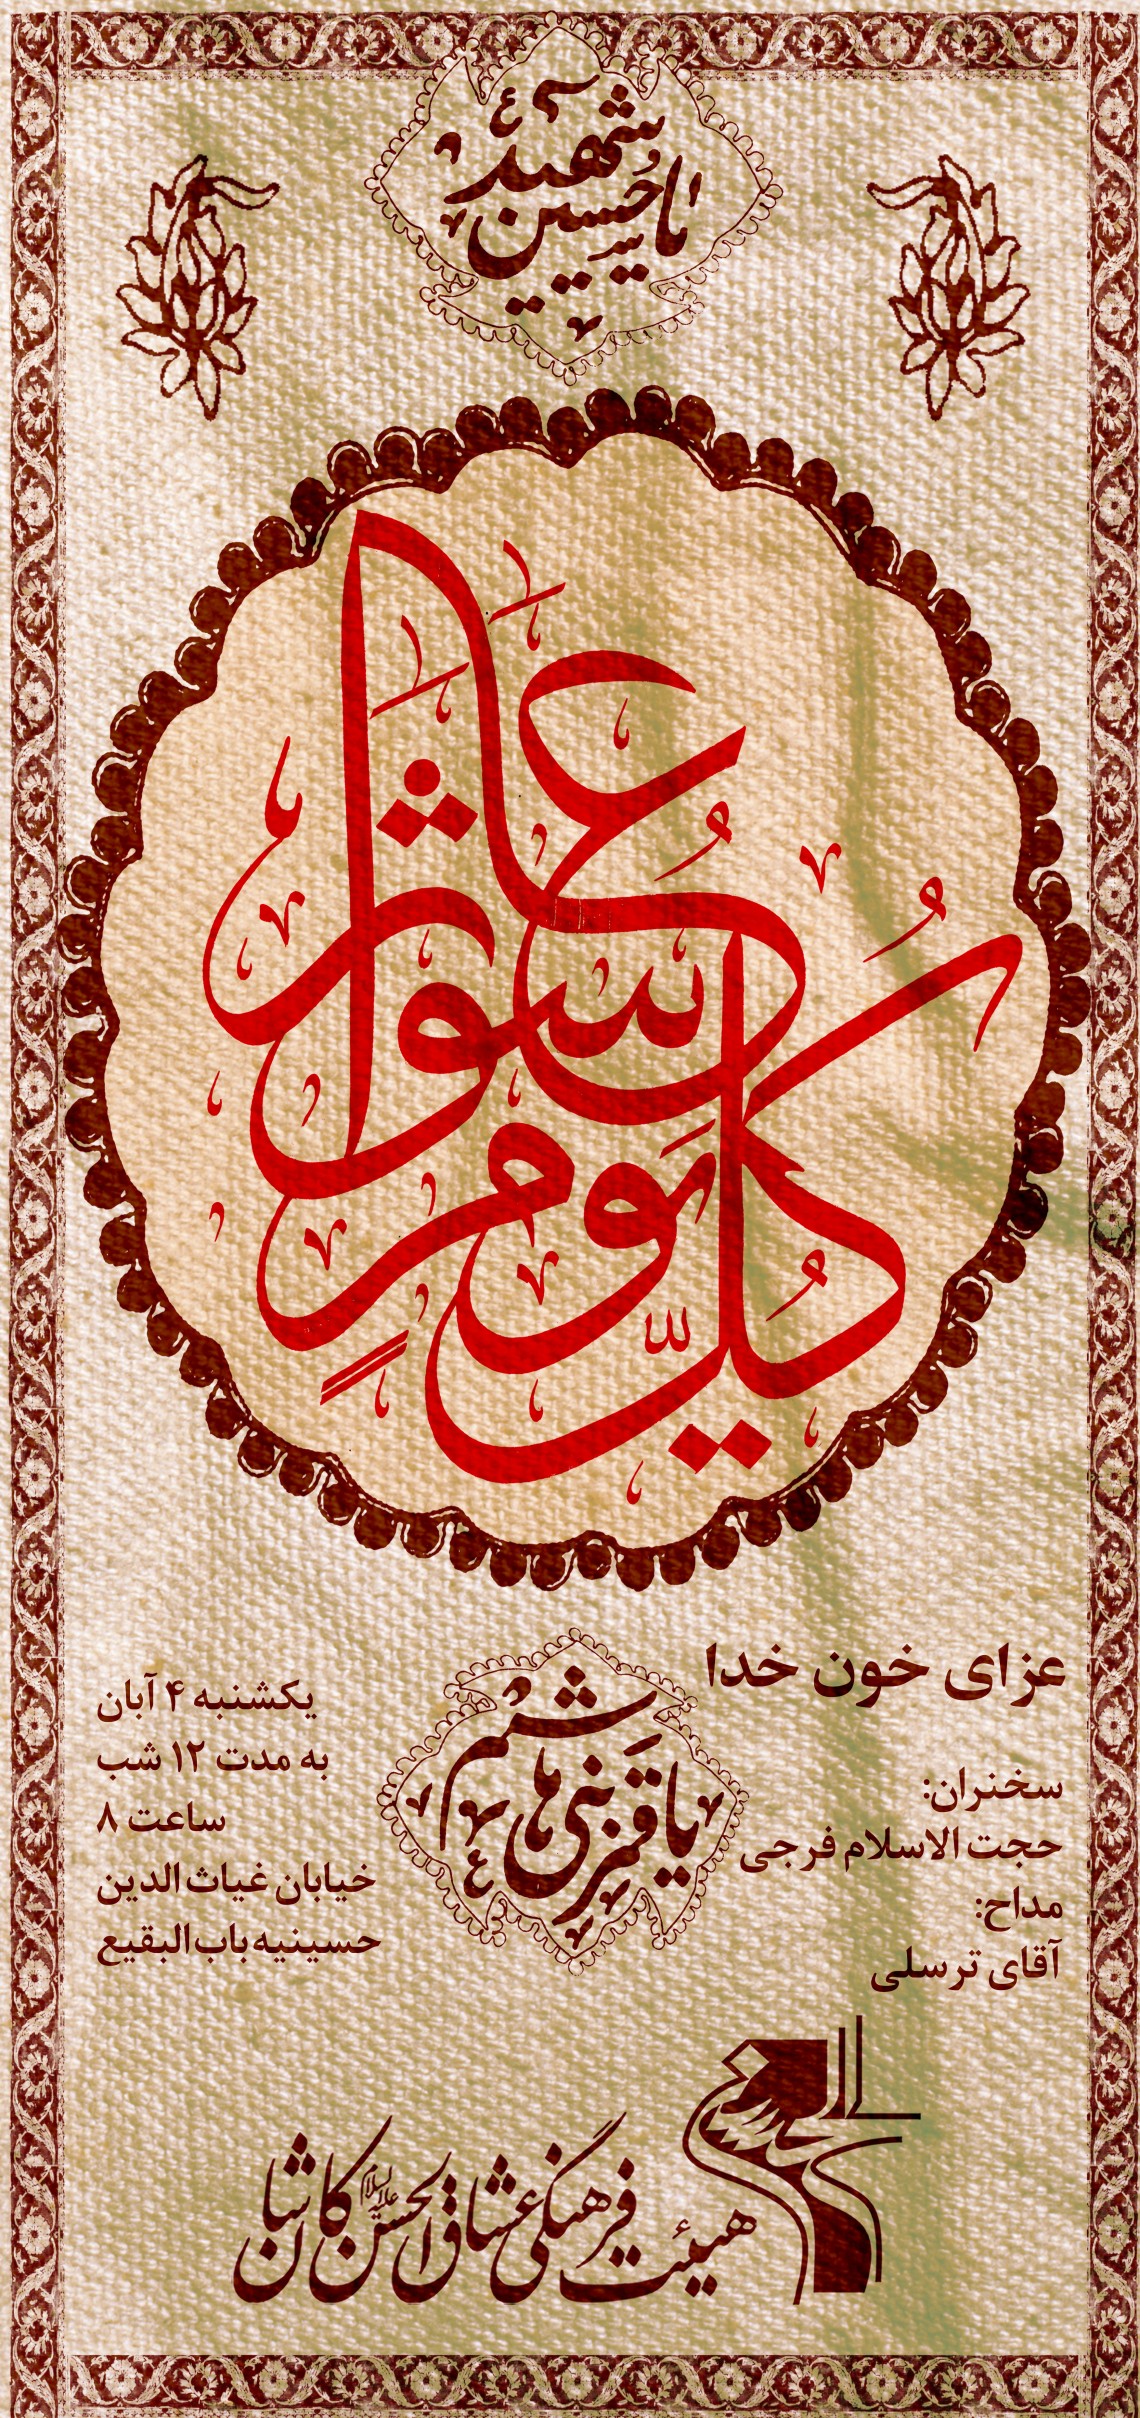 یا حسین شهید
کل یوم عاشورا
عزای خون خدا
سخنران:
حجت الاسلام فرجی
مداح:
آقای ترسلی
یا قمر بنی هاشم
یکشنبه ۴ آبان
به مدت ۱۲ شب
ساعت ۸
خیابان غیاث الدین
حسینیه باب البقیع
هیئت فرهنگی عشاق الحسین علیه السلام کاشان